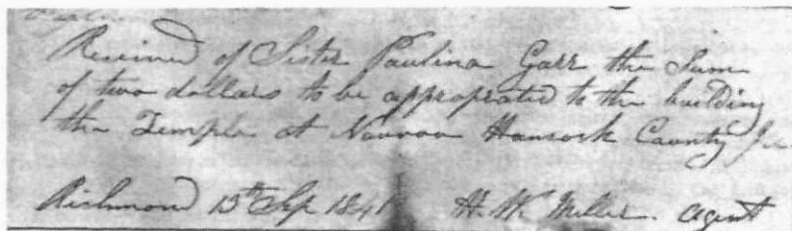 Received of Sister Paulina Garr the Sum
of two dollars to be appropriated to the building
the Temple at Nauvoo Hancock County
Richmond 15th Sep 1841 H. W. Miller. Agent